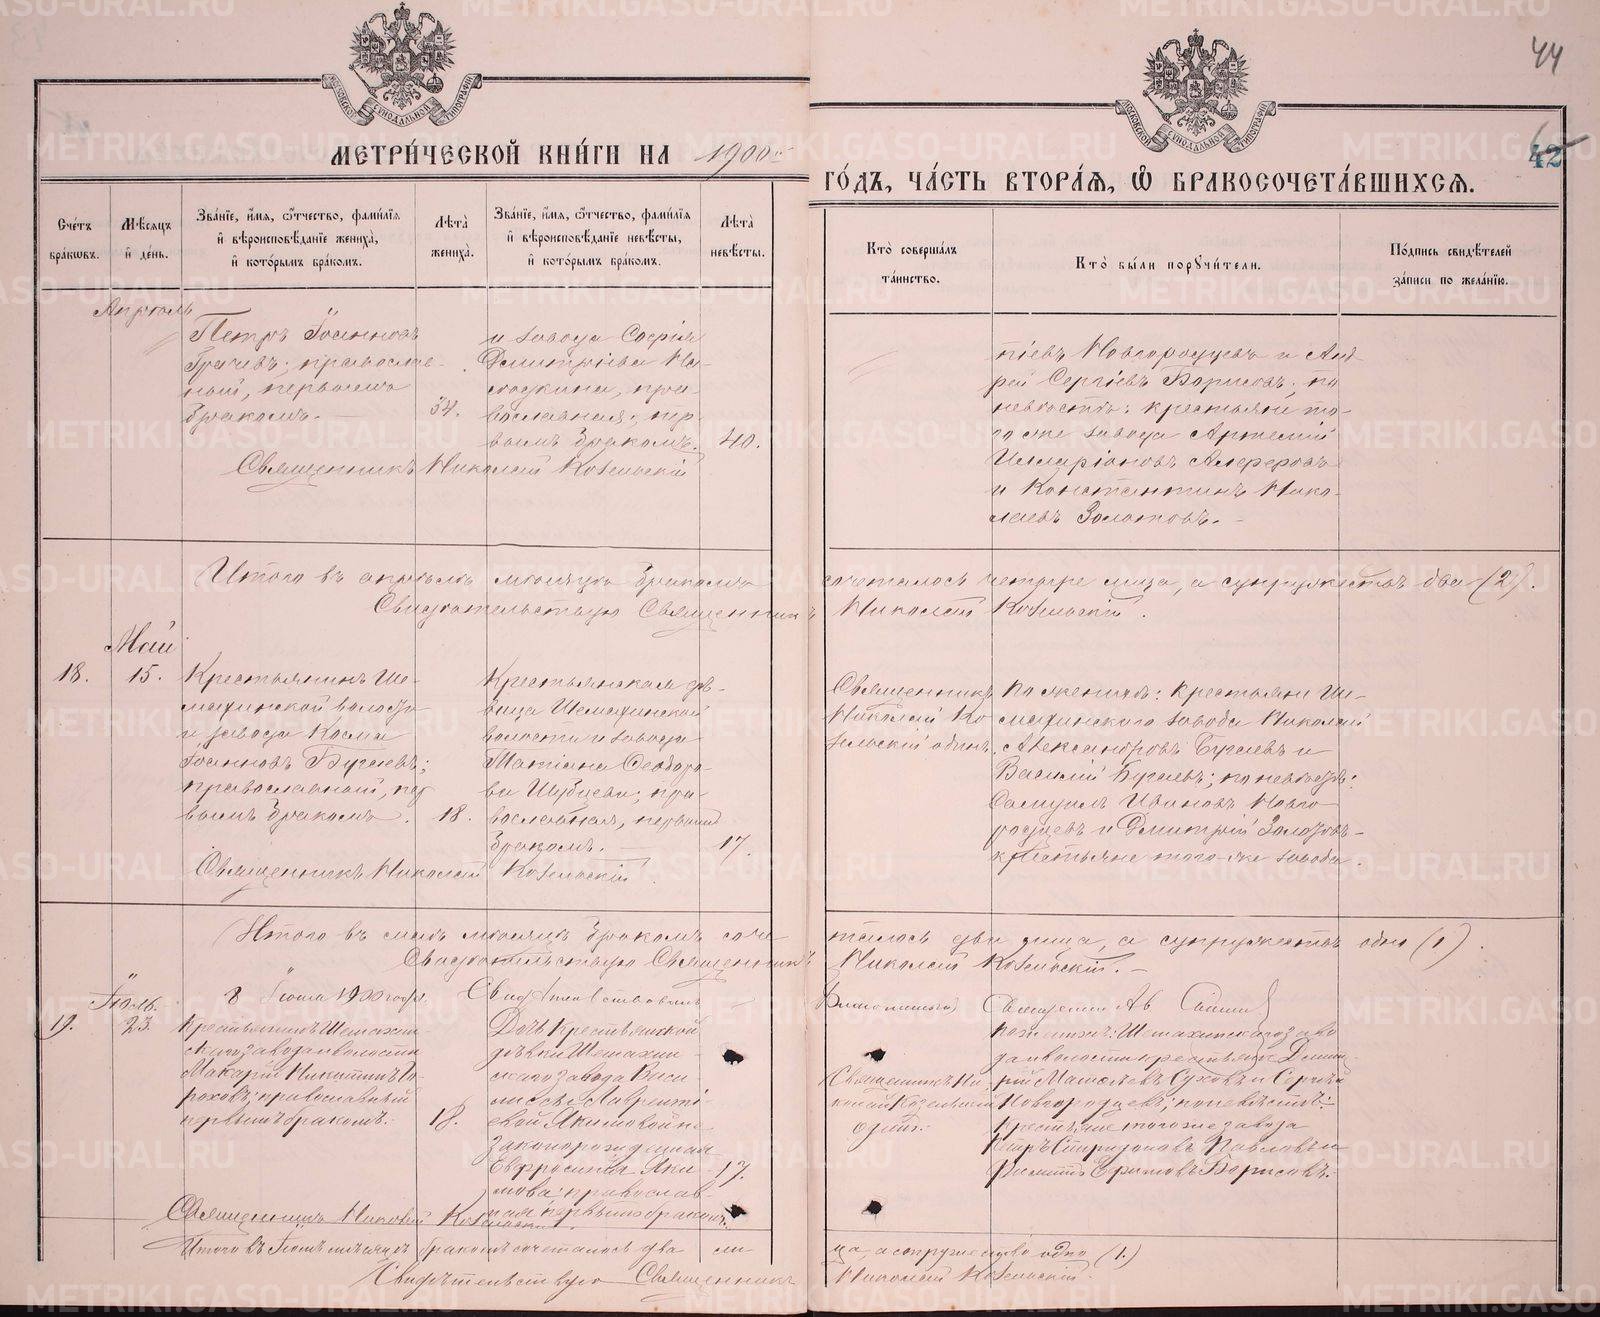 44
42
МЕТРИ́ЧЕСКОЙ КНИ́ГИ НА 1900й
ГО́ДЪ, ЧА́СТЬ ВТОРА́Я, Ѡ БРАКОСОЧЕТА́ВШИХСЯ.
Сче́тъ бра́кѡвъ.
Мѣ́сяцъ и҆ де́нь.
Зва́нїе, и҆́мя, ѻ҆́тчество, фами́лїя и҆ вѣроисповѣ́данїе жениха̀, и҆ кото́рымъ бра́комъ.
Лѣ́та жениха̀.
Зва́нїе, и҆́мя, ѻ҆́тчество, фами́лїя и҆ вѣроисповѣ́данїе невѣ́сты, и҆ кото́рымъ бра́комъ.
Лѣ́та невѣ́сты.
Кто̀ соверша́лъ та́инство.
Кто̀ бы́ли порꙋчи́тели.
По́дпись свидѣ́телей за́писи по жела́нїю.
Апрѣль
Петръ Іоанновъ
Грачевъ; православ-
ный, первымъ
бракомъ.
34.
и завода Софія
Димитріева
православная; пер-
вымъ бракомъ.
40.
Священникъ Николай Козельскій
тіевъ Новгородцевъ и Анд-
рей Сергіевъ Борисовъ; по
невѣстѣ: крестьяне то-
го же завода Артемій
Илларіоновъ Алферовъ
и Константинъ Нико-
лаевъ Золотовъ.
Итого въ апрѣлѣ мѣсяцѣ бракомъ сочеталось четыре лица, а супружествъ два (2).
Свидѣтельствую Священникъ Николай Козельскій.
Май
18.
15.
Крестьянинъ Ше-
махинской волости
и завода Косма
Іоанновъ Бугаевъ;
православный, пер
вымъ бракомъ.
18.
Крестьянская дѣ-
вица Шемахинской
волости и завода
Татіана Ѳеодоро-
ва; пра-
вославная, первымъ
бракомъ.
17.
Священникъ
Николай Ко
зельскій одинъ.
По женихѣ: крестьяне Ше-
махинскаго завода Николай
Александровъ Бугаевъ и
Василій Бугаевъ; по невѣстѣ:
Самуилъ Ивановъ Новго
родцевъ и Димитрій Золотовъ
крестьяне того-же завода.
Священникъ Николай Козельскій.
Итого въ маѣ мѣсяцѣ бракомъ соче
талось два лица, а супружество одно (1).
Свидѣтельствую Священникъ Николай Козельскій.
8 Іюня 1900 года. Свидѣтельствовалъ
Благочинный Священникъ
Іюль.
19.
23.
Крестьянинъ Шемахин-
скаго завода и волости
Макарій Никитинъ Го-
роховъ; православный
первымъ бракомъ.
18.
Дочь крестьянской
дѣвки Шемахин-
скаго завода Васи
лисы Лаврентi-
евой Якимовой не
законорожденная
Евфросинія Яки
мова; православ-
ная первымъ бракомъ.
17.
Священникъ Ни
колай Козельскій
одинъ.
По женихѣ: Шемахинскаго заво
да и волости крестьяне Димит
рій Суховъ и Сергѣй
Новгородцевъ; по невѣстѣ:
крестьяне того же завода
Петръ Спиридоновъ Павловъ и
Филиппъ Ефимовъ Борисовъ.
Священникъ Николай Козельскій.
Итого въ Іюлѣ мѣсяцѣ бракомъ сочеталось два ли
ца, а супружество одно (1.)
Свидѣтельствую Священникъ
Николай Козельскій
METRIKI.GASO-URAL.RU